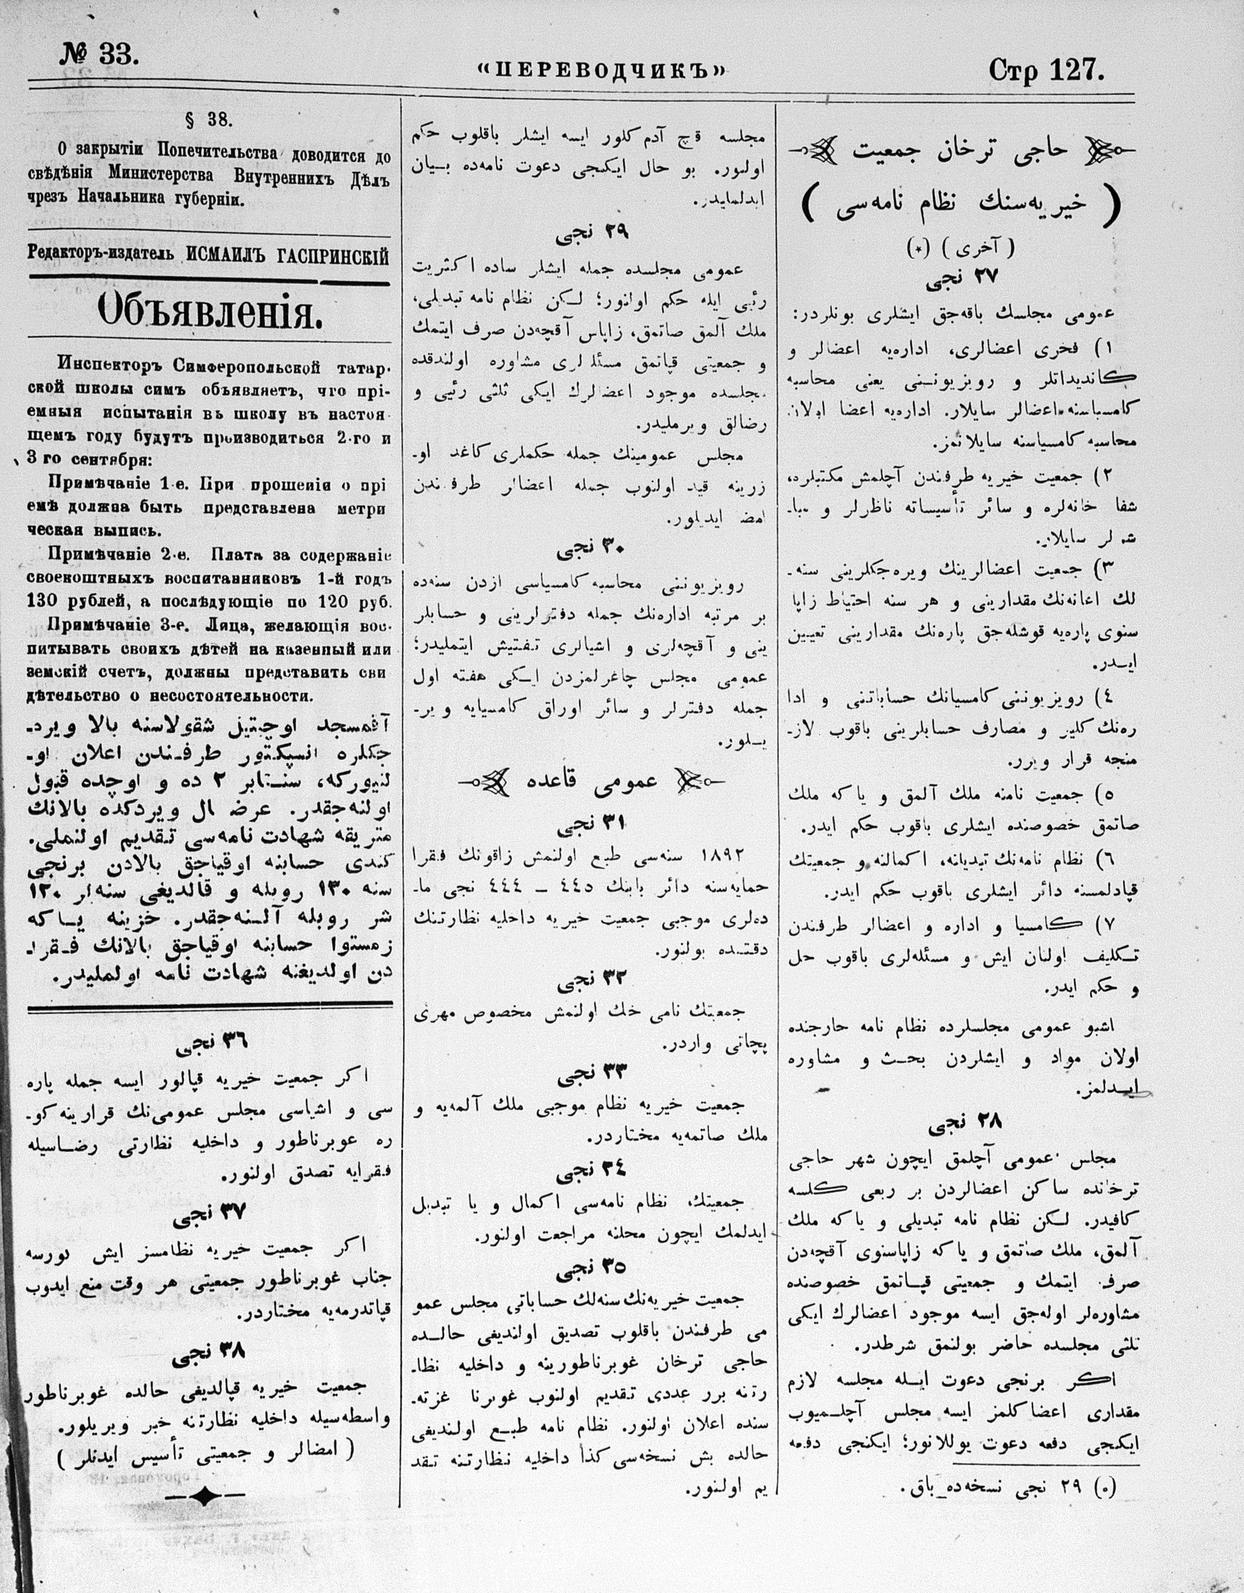 № 33.
«ПЕРЕВОДЧИКЪ»
Стр 127.
§ 38.
О закрытіи Попечительства доводится до
свѣдѣнія Министерства Внутреннихъ Дѣлъ
чрезъ Начальника губерніи.
Редакторъ-издатель ИСМАИЛЪ ГАСПРИНСКІЙ
Объявленія.
Инспекторъ Симферопольской татар-
ской школы симъ объявляетъ, что прі-
емныя испытанія въ школу въ настоя-
щемъ году будутъ производиться 2-го и
3 го сентября:
Примѣчаніе 1-е. При прошеніи о прі
емѣ должна быть представлена метри
ческая выпись.
Примѣчаніе 2-е. Плата за содержаніе
своекоштныхъ воспитанниковъ 1-й годъ
130 рублей, а послѣдующіе по 120 руб.
Примѣчаніе 3-е. Лица, желающія вос-
питывать своихъ дѣтей на казенный или
земскій счетъ, должны представить сви
дѣтельство о несостоятельности.
آقمسجد اوچيتيل شقولاسنه بالا ويرد۔
جكلره انسپكتور طرفندن اعلان او۔
لنيوركه، سنتابر ۲ ده و اوچده قبول
اولنه‌جقدر. عرضحال ويردكده بالانك
متريقه شهادت نامه‌سى تقديم اولنملى.
كندى حسابنه اوقياجق بالادن برنجى
سنه ۱۳۰ روبله و قالديغى سنه‌لر ۱۲۰
شر روبله آلنه‌جقدر. خزينه ياكه
زمستوا حسابنه اوقياجق بالانك فقرا۔
دن اولديغنه شهادت نامه اولمليدر.
۳۶ نجى
اكر جمعيت خيريه قپالور ايسه جمله پاره
سى و اشياسى مجلس عمومى‌نك قرارينه كو۔
ره غوبرناطور و داخليه نظارتى رضاسيله
فقرايه تصدق اولنور.
۳۷ نجى
اكر جمعيت خيريه نظامسز ايش كورسه
جناب غوبرناطور جمعيتى هر وقت منع ايدوب
قپاتدرمه‌يه مختاردر.
۳۸ نجى
جمعيت خيريه قپالديغى حالده غوبرناطور
واسطه‌سيله داخليه نظارتنه خبر ويريلور.
( امضالر و جمعيتى تأسيس ايدنلر )
مجلسه قچ آدم كلور ايسه ايشلر باقلوب حكم
اولنور. بو حال ايكنجى دعوت نامه‌ده بيان
ايدلمليدر.
۲۹ نجى
عمومى مجلسده جمله ايشلر ساده اكثريت
رئيى ايله حكم اولنور؛ لكن نظام نامه تبديلى،
ملك آلمق صاتمق، زاپاس آقچه‌دن صرف ايتمك
و جمعيتى قپاتمق مسئله‌لرى مشاوره اولندقده
مجلسده موجود اعضالرك ايكى ثلثى رئيى و
رضالق ويرمليدر.
مجلس عمومينك جمله حكملرى كاغد او۔
زرينه قيد اولنوب جمله اعضالر طرفندن
امضا ايديلور.
۳۰ نجى
رويزيوننى محاسبه كامسياسى ازدن سنه‌ده
بر مرتبه اداره‌نك جمله دفترلرينى و حسابلر
ينى و آقچه‌لرى و اشيالرى تفتيش ايتمليدر؛
عمومى مجلس چاغرلمزدن ايكى هفته اول
جمله دفترلر و سائر اوراق كامسيايه وير۔
يلور.
عمومى قاعده
۳۱ نجى
۱۸۹۲ سنه‌سى طبع اولنمش زاقونك فقرا
حمايه‌سنه دائر بابنك ٤٤٥ – ٤٤٤ نجى ما۔
ده‌لرى موجبى جمعيت خيريه داخليه نظارتنك
دقتنده بولنور.
۳۲ نجى
جمعيتك نامى حك اولنمش مخصوص مهرى
پچاتى واردر.
۳۳ نجى
جمعيت خيريه نظام موجبى ملك آلمه‌يه و
ملك صاتمه‌يه مختاردر.
۳٤ نجى
جمعيتك، نظام نامه‌سى اكمال و يا تبديل
ايدلمك ايچون محلنه مراجعت اولنور.
۳٥ نجى
جمعيت خيريه‌نك سنه‌لك حساباتى مجلس عمو
مى طرفندن باقلوب تصديق اولنديغى حالده
حاجى ترخان غوبرناطورينه و داخليه نظا۔
رتنه برر عددى تقديم اولنوب غوبرنا غزته۔
سنده اعلان اولنور. نظام نامه طبع اولنديغى
حالده بش نسخه‌سى كذا داخليه نظارتنه تقد
يم اولنور.
حاجى ترخان جمعيت
( خيريه‌سنك نظام نامه‌سى )
( آخرى ) (*)
۲۷ نجى
عمومى مجلسك باقه‌جق ايشلرى بونلردر:
۱) فخرى اعضالرى، اداره‌يه اعضالر و
كانديداتلر و رويزيوننى يعنى محاسبه
كامسياسنه اعضالر سايلار. اداره‌يه اعضا اولان
محاسبه كامسياسنه سايلانمز.
۲) جمعيت خيريه طرفندن آچلمش مكتبلره،
شفا خانه‌لره و سائر تأسيساته ناظرلر و مبا۔
شرلر سايلار.
۳) جمعيت اعضالرينك ويره‌جكلرينى سنه۔
لك اعانه‌نك مقدارينى و هر سنه احتياط زاپا
سنوى پاره‌يه قوشله‌جق پاره‌نك مقدارينى تعيين
ايدر.
٤) رويزيوننى كامسيانك حساباتنى و ادا
ره‌نك كلير و مصارف حسابلرينى باقوب لاز۔
منجه قرار ويرر.
٥) جمعيت نامنه ملك آلمق و ياكه ملك
صاتمق خصوصنده ايشلرى باقوب حكم ايدر.
٦) نظام نامه‌نك تبديلنه، اكمالنه و جمعيتك
قپادلمسنه دائر ايشلرى باقوب حكم ايدر.
۷) كامسيا و اداره و اعضالر طرفندن
تكليف اولنان ايش و مسئله‌لرى باقوب حل
و حكم ايدر.
اشبو عمومى مجلسلرده نظام نامه خارجنده
اولان مواد و ايشلردن بحث و مشاوره
ايدلمز.
۲۸ نجى
مجلس عمومى آچلمق ايچون شهر حاجى
ترخانده ساكن اعضالردن بر ربعى كلسه
كافيدر. لكن نظام نامه تبديلى و ياكه ملك
آلمق، ملك صاتمق و ياكه زاپاسنوى آقچه‌دن
صرف ايتمك و جمعيتى قپاتمق خصوصنده
مشاوره‌لر اوله‌جق ايسه موجود اعضالرك ايكى
ثلثى مجلسده حاضر بولنمق شرطدر.
اكر برنجى دعوت ايله مجلسه لازم
مقدارى اعضا كلمز ايسه مجلس آچلميوب
ايكنجى دفعه دعوت يوللانور؛ ايكنجى دفعه
(*) ۲۹ نجى نسخه‌ده باق.